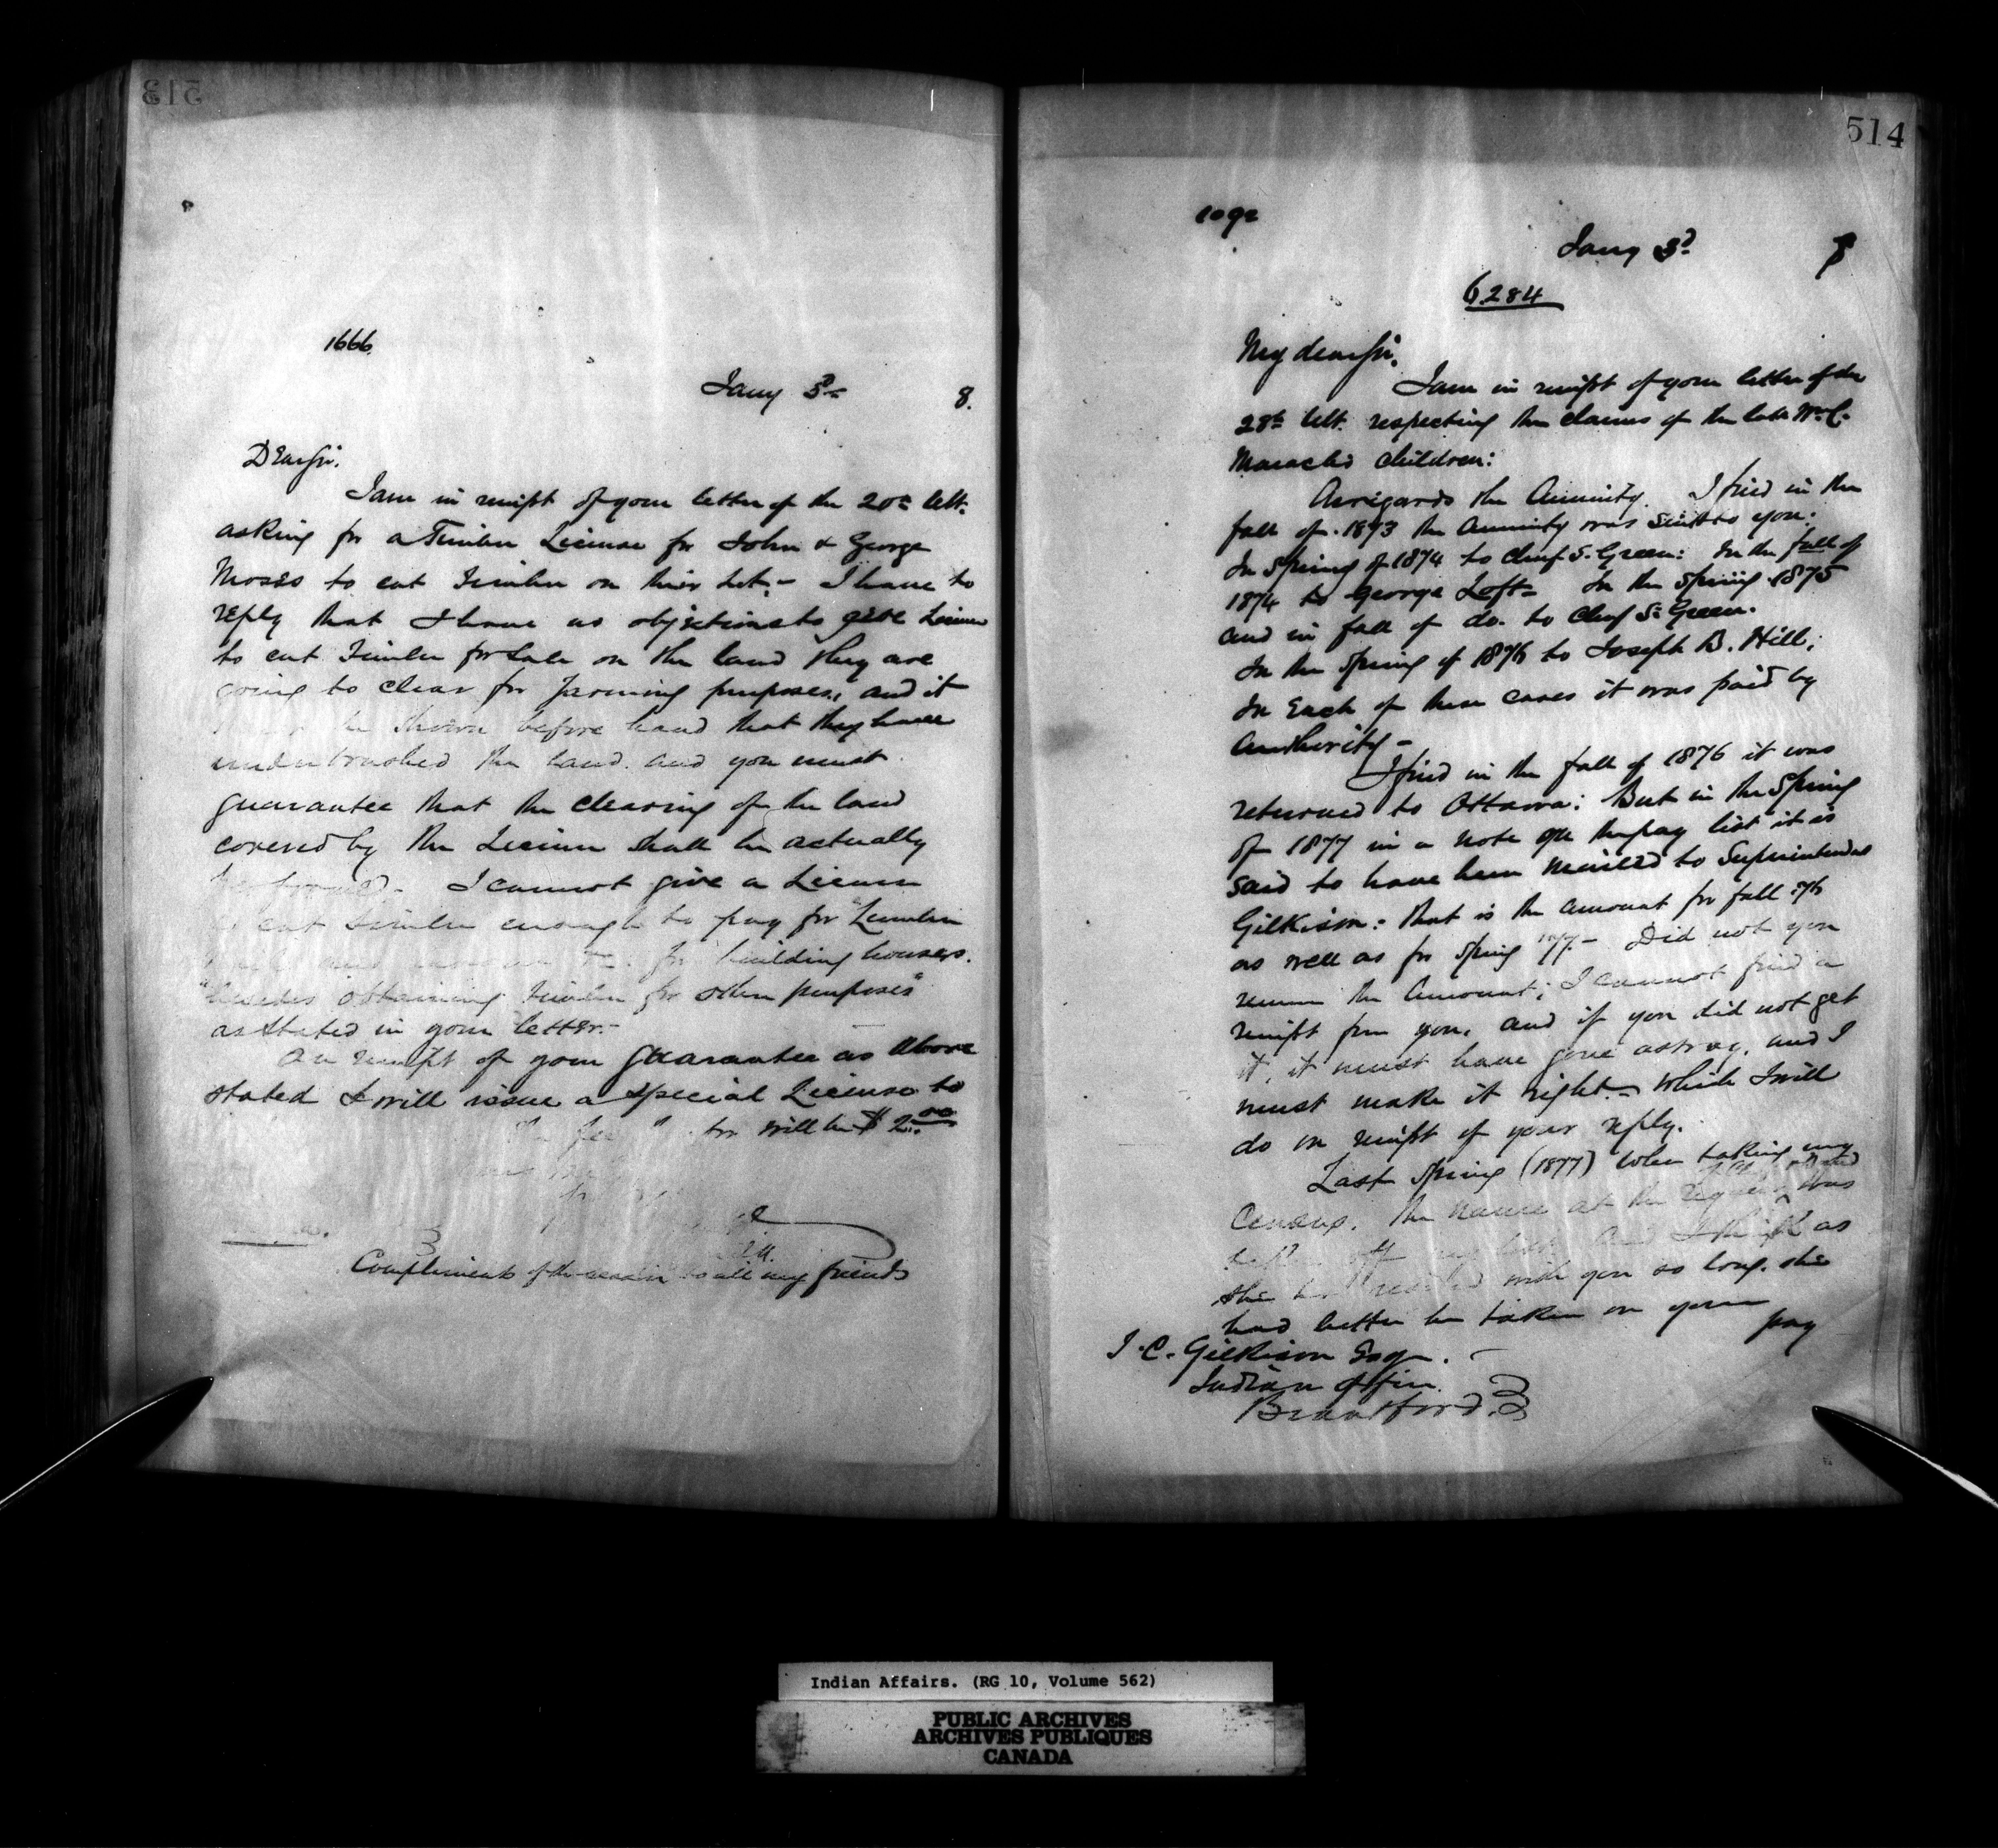 513
1666.
Jany 3d 8.
Dear Sir.
I am in receipt of your letter of the 20th Ult.
asking for a Timber License for John & George
Moses to cut Timber on their Lot. – I have to
reply that I have no objections to give License
to cut Timber for Sale on the land they are
going to clear for farming purposes, and it
be shown before hand that they have
underbrushed the land. and you must
guarantee that the clearing of the land
covered by the License shall be actually
performed. I cannot give a License
to cut timber enough to pay for "Lumber
for building houses.
"besides obtaining timber for other purposes"
as stated in your letter. –
On receipt of your guarantee as above
stated I will issue a special License to
The fee for will be $2.00
Compliments of the season to all my friends
514
Jany 3d 8
6284
My dear Sir.
I am in receipt of your letter of the
28th Ult. respecting the claims of the late Wm C.
children:
As regards the Annuity. I find in the
fall of 1873 the Annuity was sent to you:
In Spring of 1874 to Chief S. Green: In the fall of
1874 to George Loft – In the Spring 1875
and in fall of do. to Chief S. Green.
In the Spring of 1876 to Joseph B. Hill;
In Each of these cases it was paid by
Authority –
I find in the fall of 1876 it was
returned to Ottawa: But in the Spring
of 1877 in a note on the pay list it is
said to have been mailed to Superintendent
Gilkison: that is the amount for fall 76
as well as for Spring 1877. – Did not you
receive the Amount; I cannot find a
receipt from you, and if you did not get
it, it must have gone astray, and I
must make it right. – which I will
do on receipt of your reply.
Last Spring (1877) when taking my
Census, the name at the request was
off my list and I think as
she has resided with you so long, she
had better be taken on your pay
J. C. Gilkison Esqr.
Indian Office
Brantford.
Indian Affairs. (RG 10, Volume 562)
PUBLIC ARCHIVES
ARCHIVES PUBLIQUES
CANADA